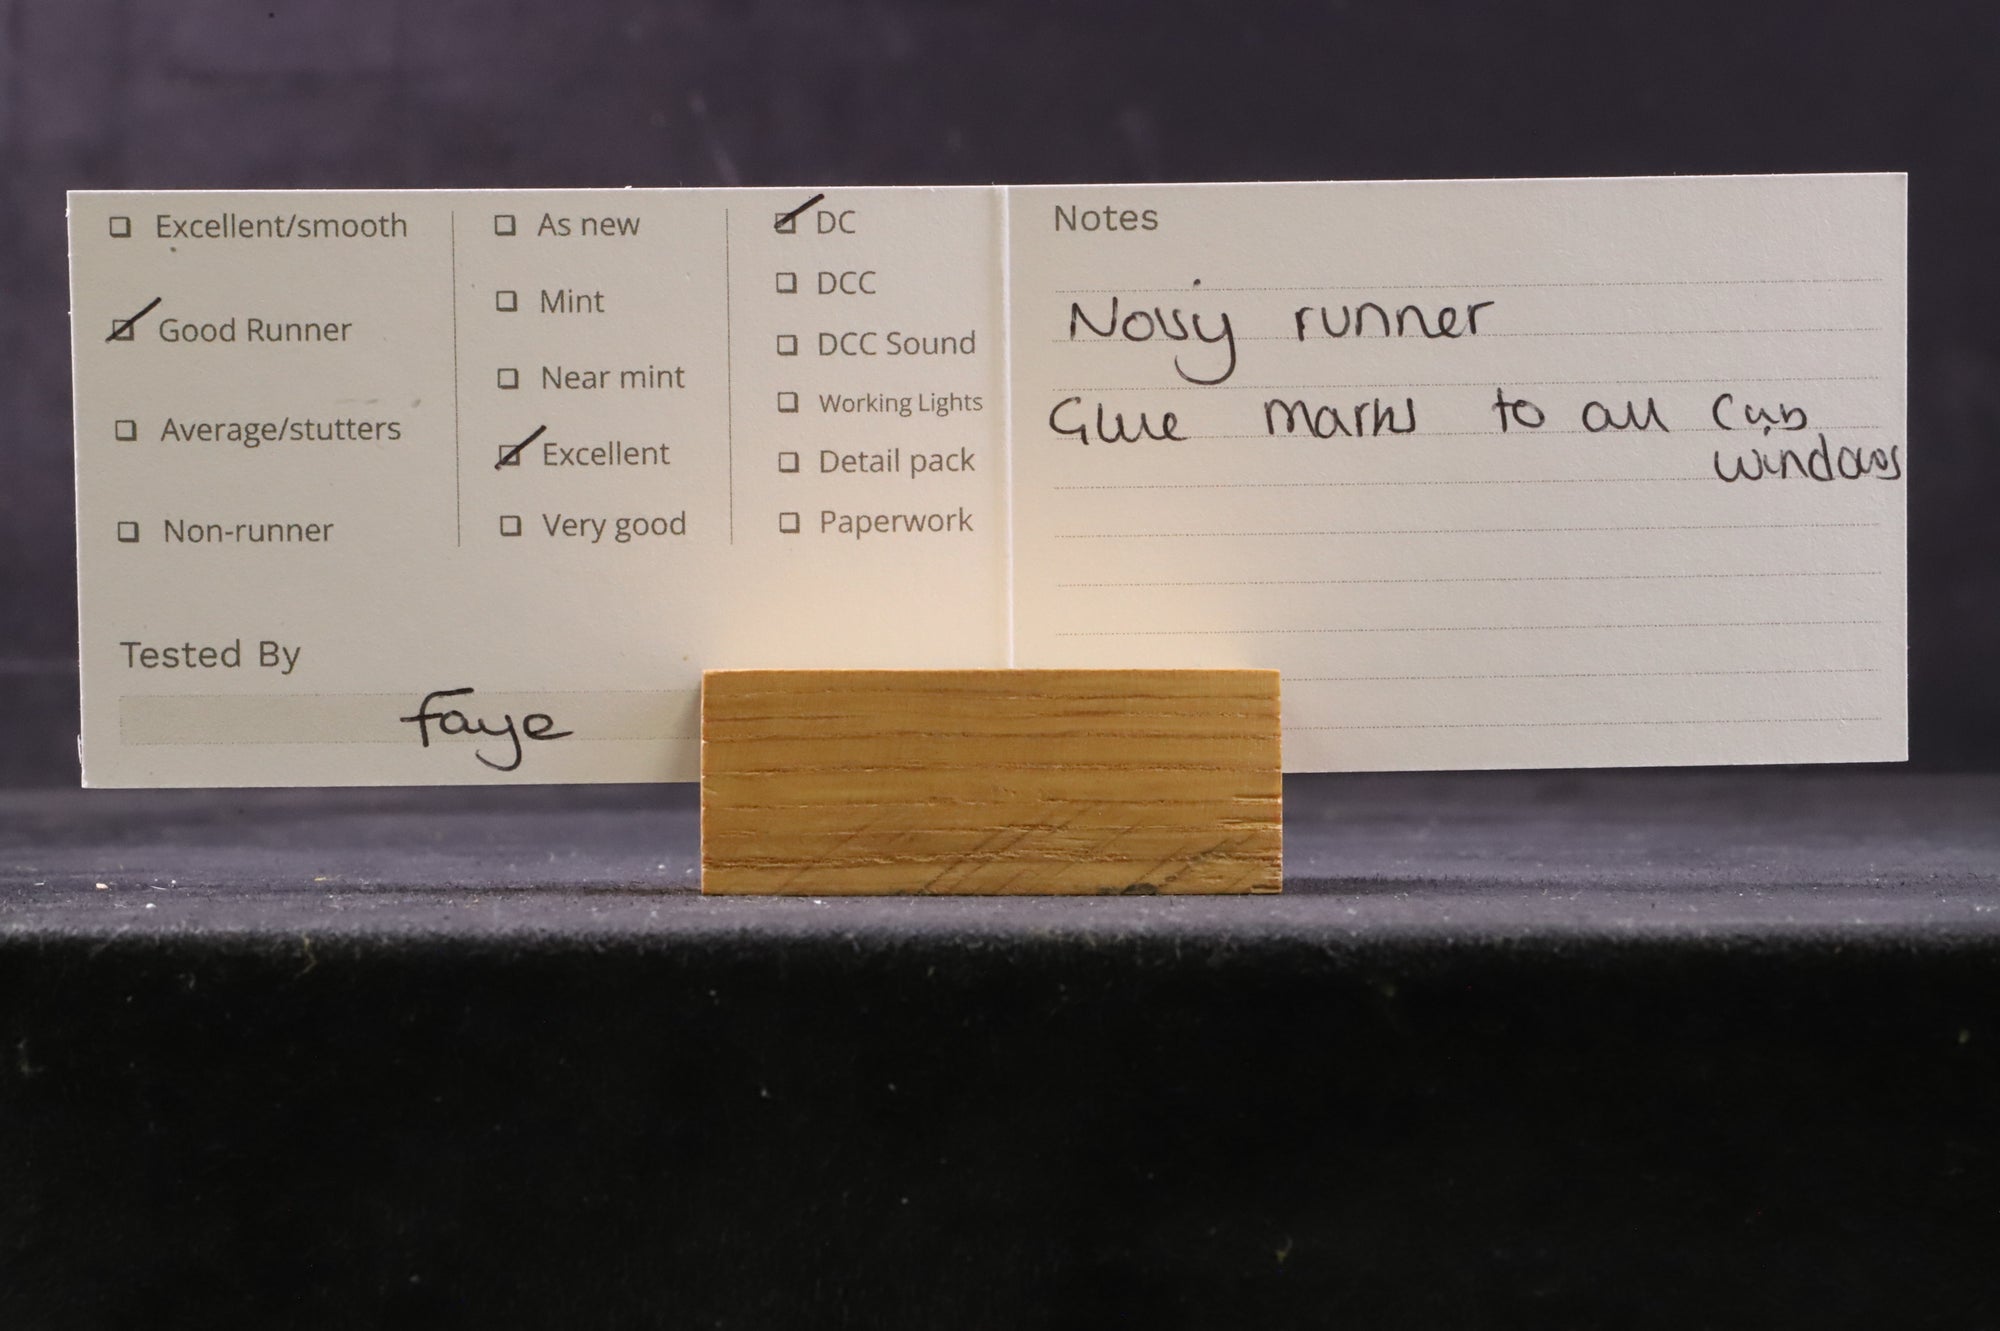 Excellent/smooth
Good Runner
Average/stutters
Non-runner
As new
Mint
Near mint
Excellent
Very good
DC
DCC
DCC Sound
Working Lights
Detail pack
Paperwork
Tested By
faye
Notes
Noisy runner
Glue marks to all cab
windows